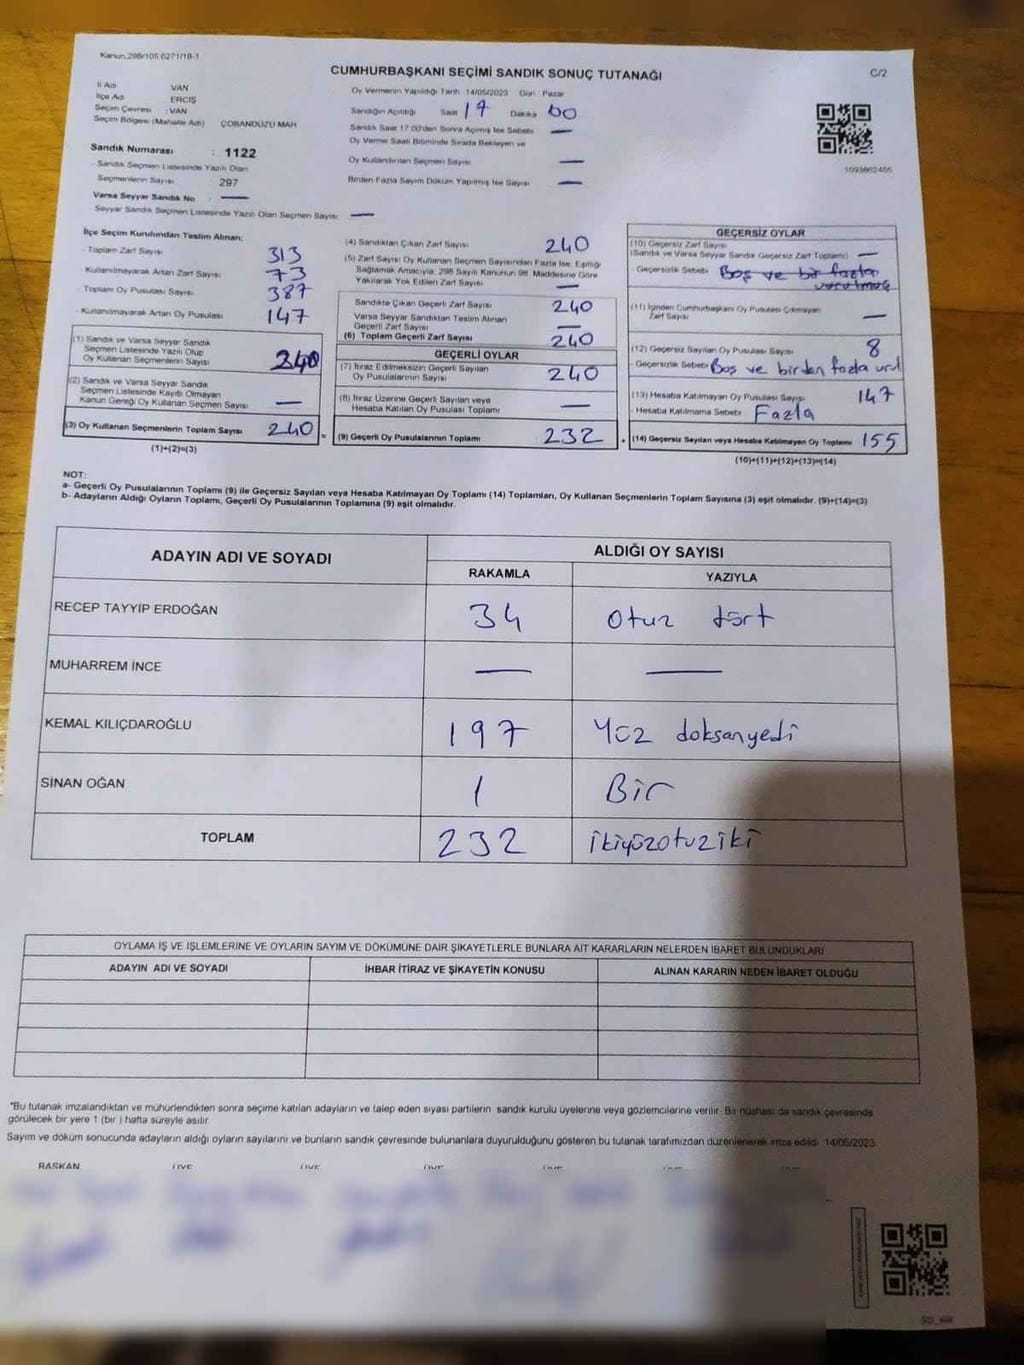 Kanun,298/105,6271/18-1
CUMHURBAŞKANI SEÇİMİ SANDIK SONUÇ TUTANAĞI
C/2
İl Adı VAN
İlçe Adı ERCİŞ
Seçim Çevresi : VAN
Seçim Bölgesi (Mahalle Adı) ÇOBANDÜZÜ MAH
Oy Vermenin Yapıldığı Tarih :14/05/2023 Gün Pazar
Sandığın Açıldığı Saat 17 Dakika 00
Sandık Saat 17:00'den Sonra Açılmış İse Sebebi —
Oy Verme Saati Bitiminde Sırada Bekleyen ve
Oy Kullandırılan Seçmen Sayısı —
Birden Fazla Sayım Döküm Yapılmış İse Sayısı —
Sandık Numarası : 1122
- Sandık Seçmen Listesinde Yazılı Olan
Seçmenlerin Sayısı 297
Varsa Seyyar Sandık No —
- Seyyar Sandık Seçmen Listesinde Yazılı Olan Seçmen Sayısı —
İlçe Seçim Kurulundan Teslim Alınan;
- Toplam Zarf Sayısı 313
- Kullanılmayarak Artan Zarf Sayısı 73
- Toplam Oy Pusulası Sayısı 387
- Kullanılmayarak Artan Oy Pusulası 147
(1) Sandık ve Varsa Seyyar Sandık
Seçmen Listesinde Yazılı Olup
Oy Kullanan Seçmenlerin Sayısı 240
(2) Sandık ve Varsa Seyyar Sandık
Seçmen Listesinde Kayıtlı Olmayan
Kanun Gereği Oy Kullanan Seçmen Sayısı —
(3) Oy Kullanan Seçmenlerin Toplam Sayısı 240
(1)+(2)=(3)
(4) Sandıktan Çıkan Zarf Sayısı 240
(5) Zarf Sayısı Oy Kullanan Seçmen Sayısından Fazla İse, Eşitliği
Sağlamak Amacıyla; 298 Sayılı Kanunun 98. Maddesine Göre
Yakılarak Yok Edilen Zarf Sayısı —
Sandıkta Çıkan Geçerli Zarf Sayısı 240
Varsa Seyyar Sandıktan Teslim Alınan
Geçerli Zarf Sayısı —
(6) Toplam Geçerli Zarf Sayısı 240
GEÇERLİ OYLAR
(7) İtiraz Edilmeksizin Geçerli Sayılan
Oy Pusulalarının Sayısı 240
(8) İtiraz Üzerine Geçerli Sayılan veya
Hesaba Katılan Oy Pusulası Toplamı —
= (9) Geçerli Oy Pusulalarının Toplamı 232
GEÇERSİZ OYLAR
(10) Geçersiz Zarf Sayısı
(Sandık ve Varsa Seyyar Sandık Geçersiz Zarf Toplamı) —
- Geçersizlik Sebebi Boş ve bir fazla
vurulmuş
(11) İçinden Cumhurbaşkanı Oy Pusulası Çıkmayan
Zarf Sayısı —
(12) Geçersiz Sayılan Oy Pusulası Sayısı 8
- Geçersizlik Sebebi Boş ve birden fazla vurul
(13) Hesaba Katılmayan Oy Pusulası Sayısı 147
- Hesaba Katılmama Sebebi Fazla
+ (14) Geçersiz Sayılan veya Hesaba Katılmayan Oy Toplamı 155
(10)+(11)+(12)+(13)=(14)
NOT:
a- Geçerli Oy Pusulalarının Toplamı (9) ile Geçersiz Sayılan veya Hesaba Katılmayan Oy Toplamı (14) Toplamları, Oy Kullanan Seçmenlerin Toplam Sayısına (3) eşit olmalıdır. (9)+(14)=(3)
b- Adayların Aldığı Oyların Toplamı, Geçerli Oy Pusulalarının Toplamına (9) eşit olmalıdır.
ADAYIN ADI VE SOYADI
ALDIĞI OY SAYISI
RAKAMLA YAZIYLA
RECEP TAYYİP ERDOĞAN 34 Otuz dört
MUHARREM İNCE — —
KEMAL KILIÇDAROĞLU 197 Yüz doksanyedi
SİNAN OĞAN 1 Bir
TOPLAM 232 ikiyüzotuziki
OYLAMA İŞ VE İŞLEMLERİNE VE OYLARIN SAYIM VE DÖKÜMÜNE DAİR ŞİKAYETLERLE BUNLARA AİT KARARLARIN NELERDEN İBARET BULUNDUKLARI
ADAYIN ADI VE SOYADI İHBAR İTİRAZ VE ŞİKAYETİN KONUSU ALINAN KARARIN NEDEN İBARET OLDUĞU
*Bu tutanak imzalandıktan ve mühürlendikten sonra seçime katılan adayların ve talep eden siyasi partilerin sandık kurulu üyelerine veya gözlemcilerine verilir. Bir nüshası da sandık çevresinde
görülecek bir yere 1 (bir ) hafta süreyle asılır.
Sayım ve döküm sonucunda adayların aldığı oyların sayılarını ve bunların sandık çevresinde bulunanlara duyurulduğunu gösteren bu tutanak tarafımızdan düzenlenerek imza edildi. 14/05/2023
BAŞKAN ÜYE ÜYE ÜYE ÜYE ÜYE ÜYE